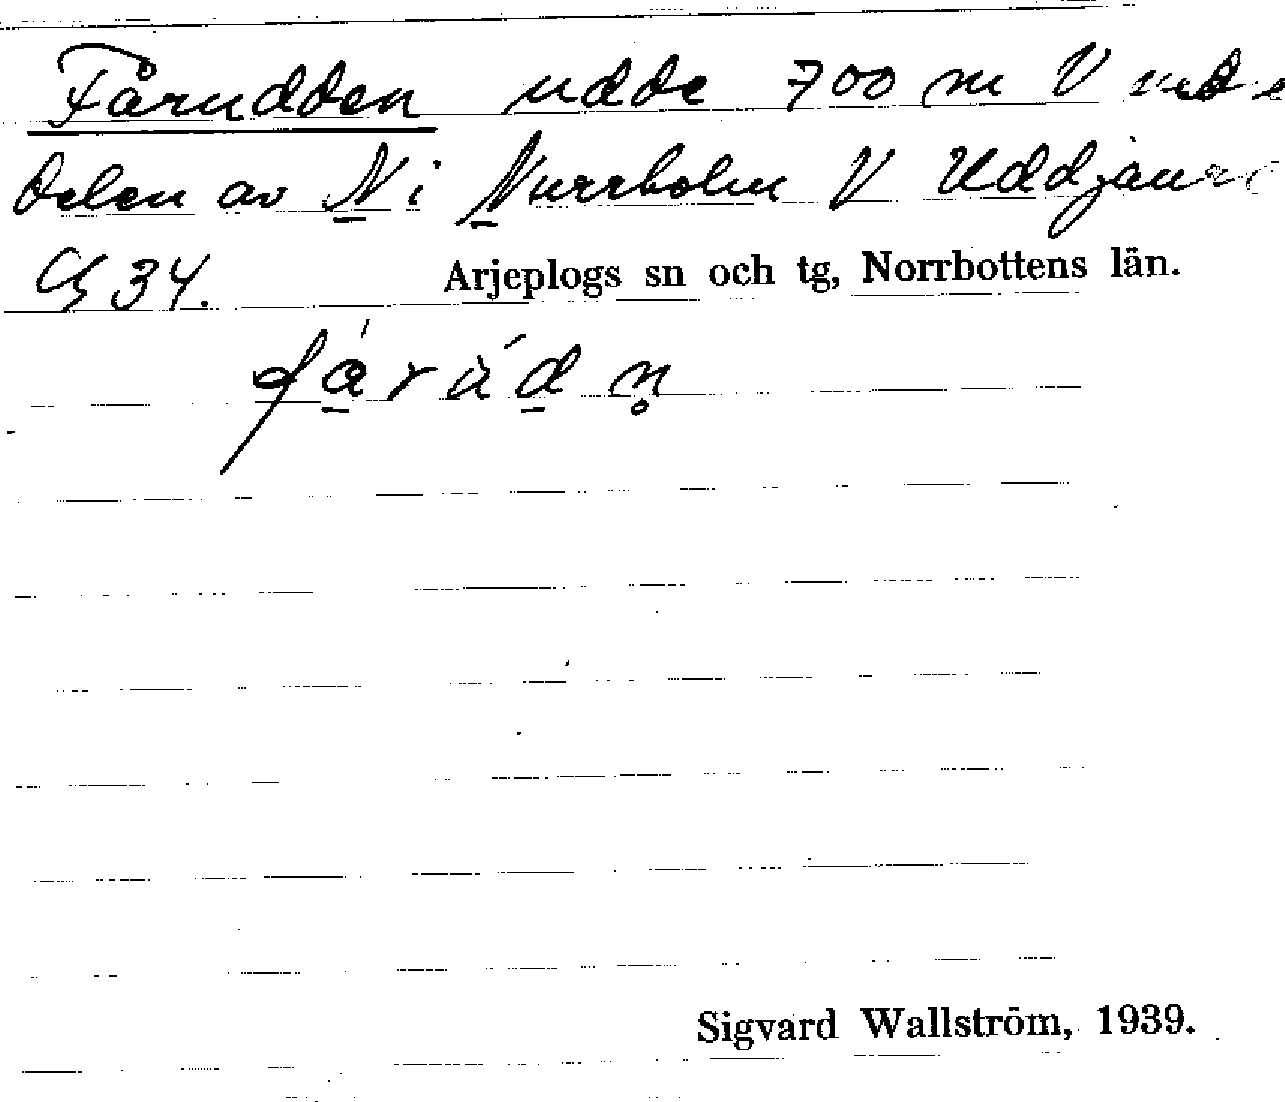 Fårudden udde 700 m V
delen av N i Nurrholm V Uddjaur
G 34.
Arjeplogs sn och tg, Norrbottens län.
fárádn̥
Sigvard Wallström, 1939.